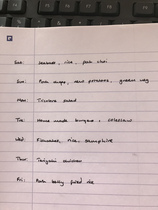 Sat: Seabass, rice, pak choi
Sun: Pork chops, new potatoes, green veg
Mon: Tricolore salad
Tue: Home made burgers, coleslaw
Wed: rice, samphire
Thur: Teriyaki chicken
Fri: Pork belly fried rice